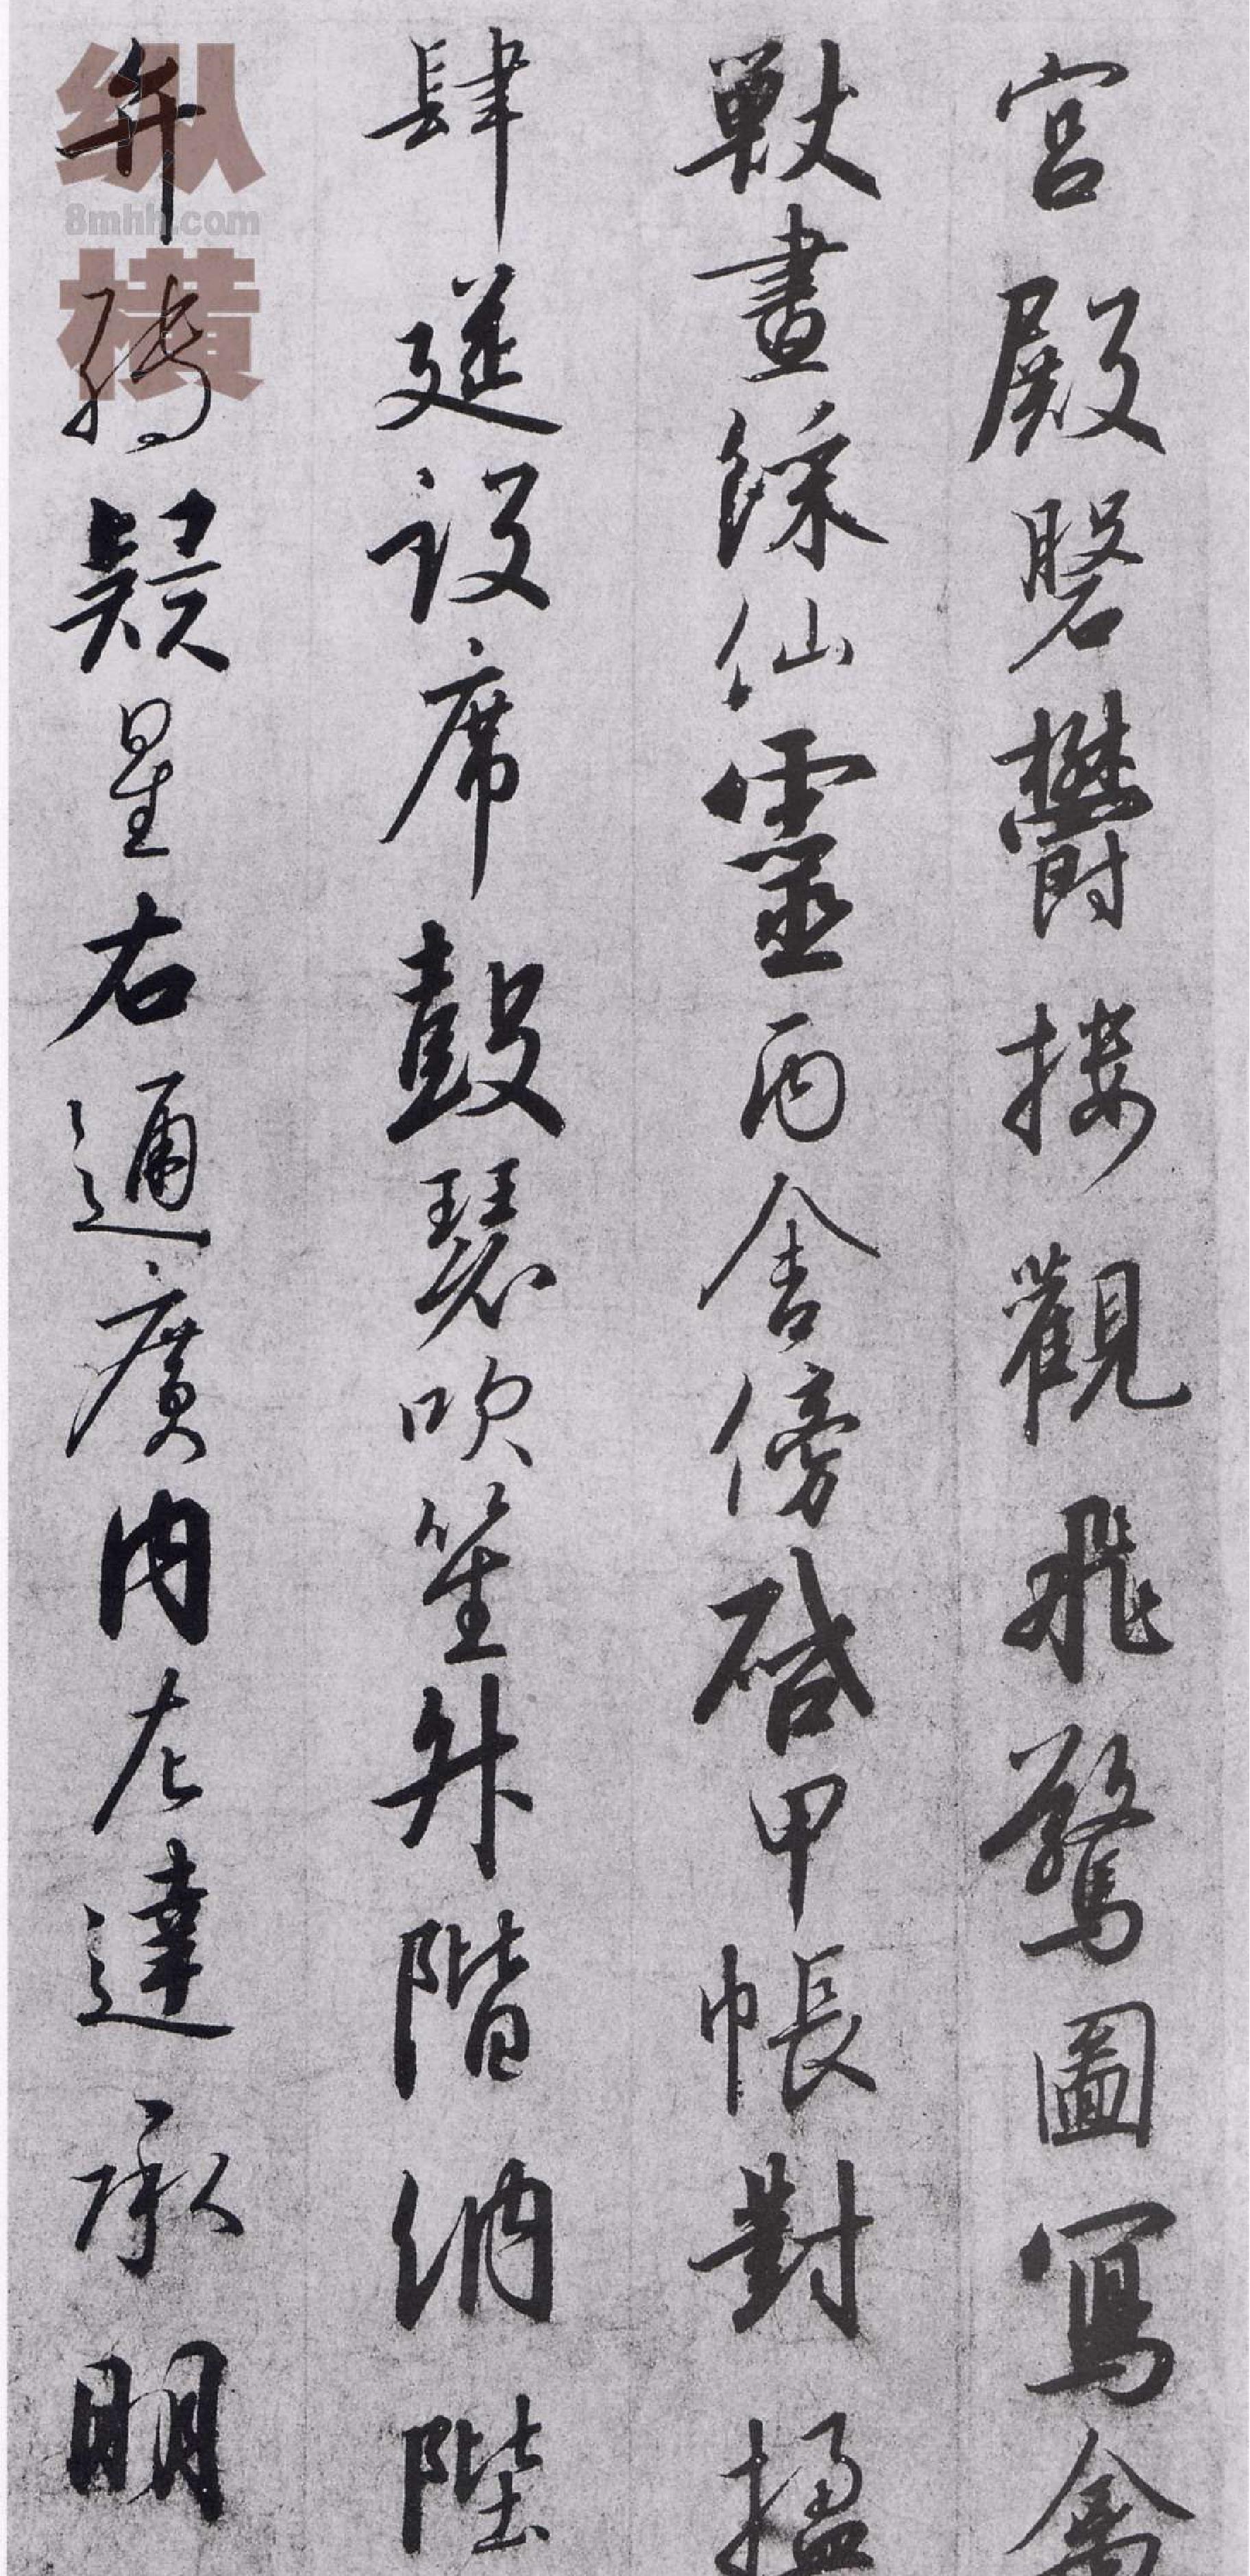 宫殿磐欝楼觀飛驚圖寫禽
獸畫綵仙靈丙舍傍啓甲帳對楹
肆筵設席鼓瑟吹笙升階納陛
弁轉疑星右通廣内左達承明
纵横
8mhh.com